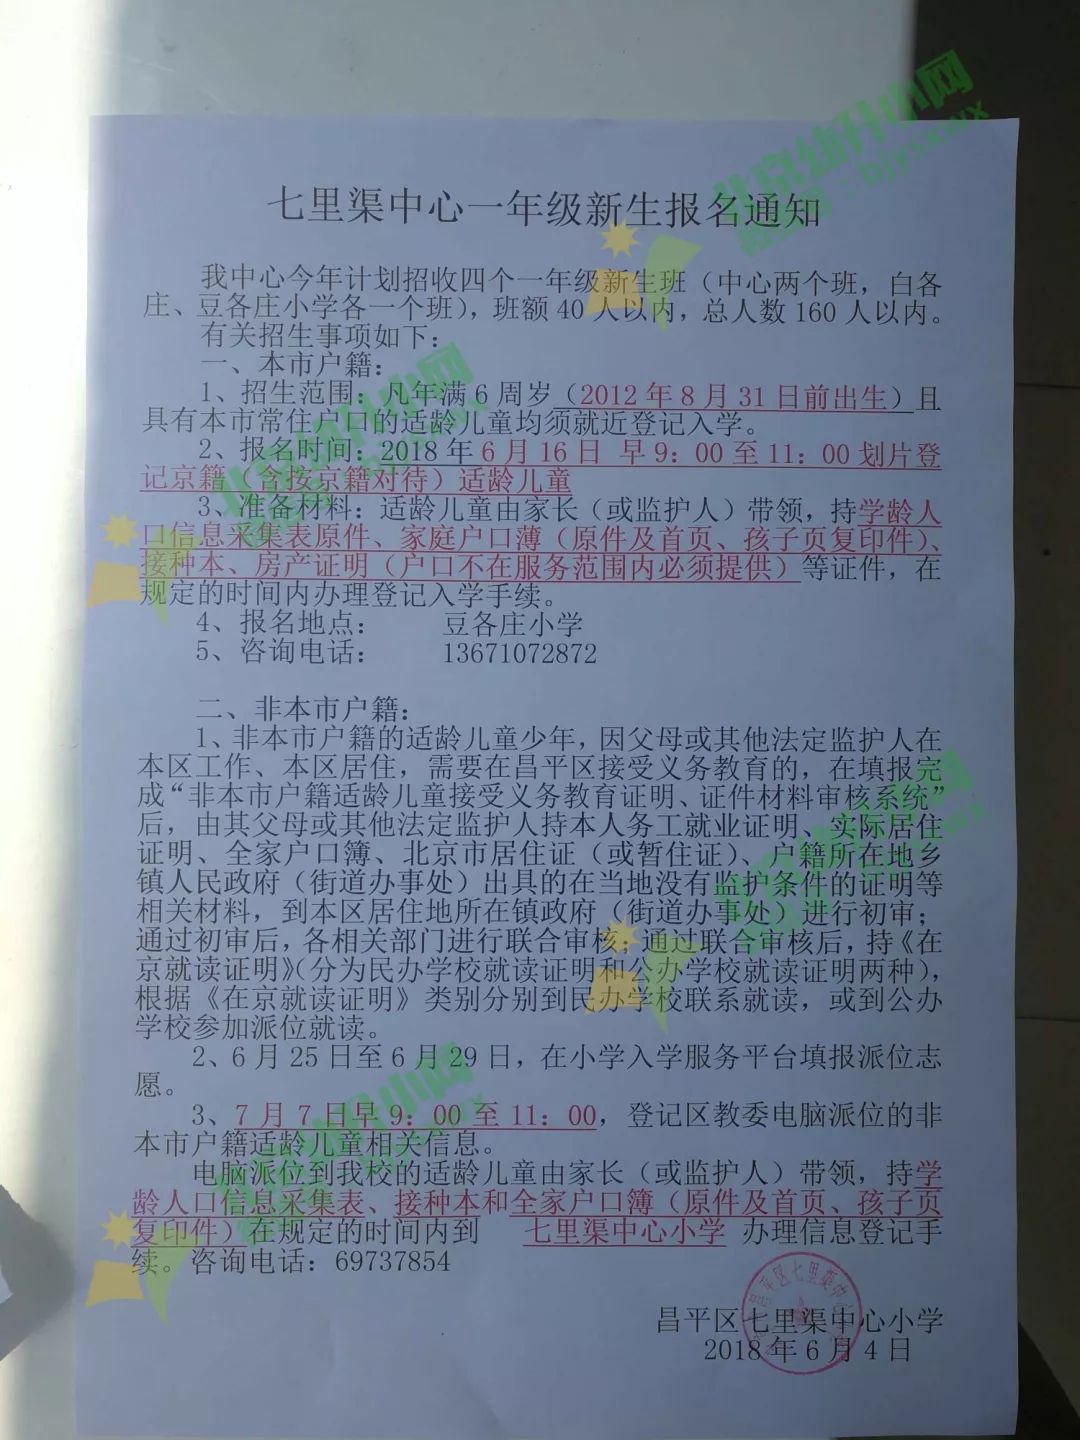 七里渠中心一年级新生报名通知
我中心今年计划招收四个一年级新生班（中心两个班，白各
庄、豆各庄小学各一个班），班额 40 人以内，总人数 160 人以内。
有关招生事项如下：
一、本市户籍：
1、招生范围：凡年满 6 周岁（2012 年 8 月 31 日前出生）且
具有本市常住户口的适龄儿童均须就近登记入学。
2、报名时间：2018 年 6 月 16 日 早 9：00 至 11：00 划片登
记京籍（含按京籍对待）适龄儿童
3、准备材料：适龄儿童由家长（或监护人）带领，持学龄人
口信息采集表原件、家庭户口薄（原件及首页、孩子页复印件）、
接种本、房产证明（户口不在服务范围内必须提供）等证件，在
规定的时间内办理登记入学手续。
4、报名地点： 豆各庄小学
5、咨询电话： 13671072872
二、非本市户籍：
1、非本市户籍的适龄儿童少年，因父母或其他法定监护人在
本区工作、本区居住，需要在昌平区接受义务教育的，在填报完
成“非本市户籍适龄儿童接受义务教育证明、证件材料审核系统”
后，由其父母或其他法定监护人持本人务工就业证明、实际居住
证明、全家户口簿、北京市居住证（或暂住证）、户籍所在地乡
镇人民政府（街道办事处）出具的在当地没有监护条件的证明等
相关材料，到本区居住地所在镇政府（街道办事处）进行初审；
通过初审后，各相关部门进行联合审核；通过联合审核后，持《在
京就读证明》（分为民办学校就读证明和公办学校就读证明两种），
根据《在京就读证明》类别分别到民办学校联系就读，或到公办
学校参加派位就读。
2、6 月 25 日至 6 月 29 日，在小学入学服务平台填报派位志
愿。
3、7 月 7 日早 9：00 至 11：00，登记区教委电脑派位的非
本市户籍适龄儿童相关信息。
电脑派位到我校的适龄儿童由家长（或监护人）带领，持学
龄人口信息采集表、接种本和全家户口簿（原件及首页、孩子页
复印件）在规定的时间内到 七里渠中心小学 办理信息登记手
续。咨询电话：69737854
昌平区七里渠中心小学
2018 年 6 月 4 日
北京幼升小网
bjysxwx